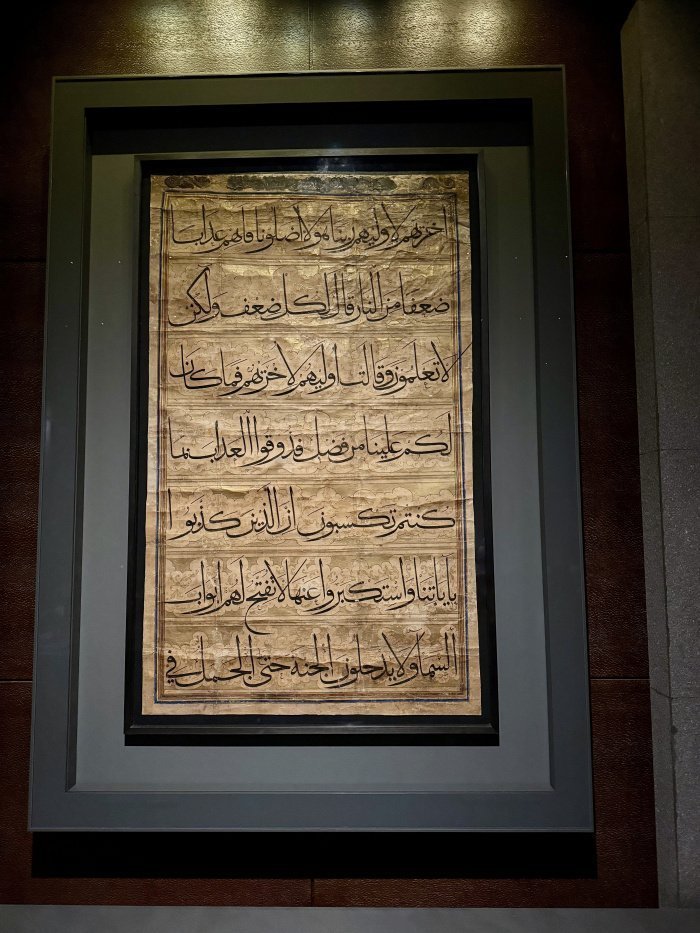 اخريهم لاوليهم ربنا هولا اضلونا فاتهم عذابا
ضعفا من النار قال لكل ضعف ولكن
لا تعلمون وقالت اوليهم لاخريهم فما كان
لكم علينا من فضل فذوقوا العذاب بما
كنتم تكسبون ان الذين كذبوا
باياتنا واستكبروا عنها لا تفتح لهم ابواب
السمآ ولا يدخلون الجنة حتى الجمل في